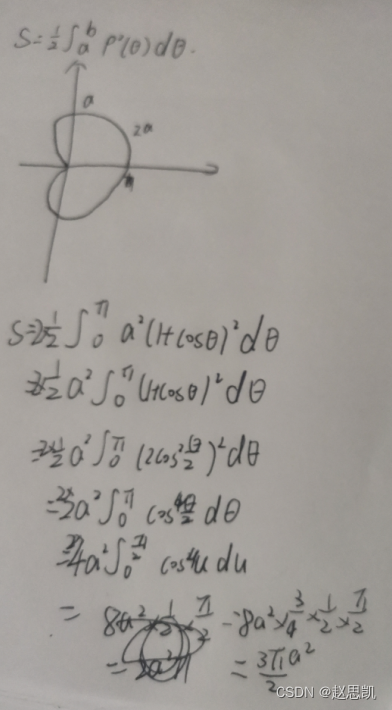 S=½∫ₐᵇ ρ²(θ)dθ.
a
2a
S=2×½∫₀^π a²(1+cosθ)²dθ
=2×½a²∫₀^π(1+cosθ)²dθ
=2×½a²∫₀^π(2cos²θ/2)²dθ
=2×2a²∫₀^π cos⁴θ/2 dθ
=2×4a²∫₀^π/2 cos⁴u du
= =8a²×3/4×1/2×π/2
=3π/2 a²
CSDN @赵思凯